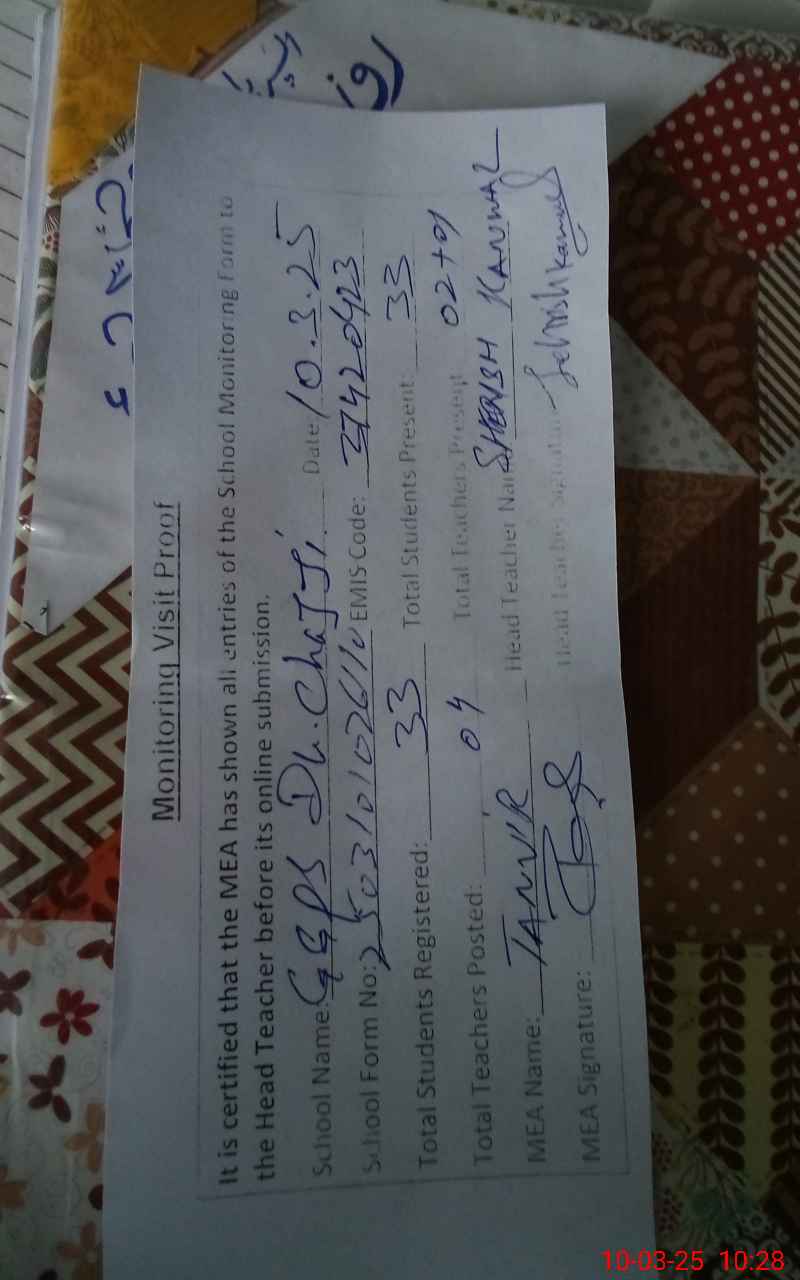 Monitoring Visit Proof
It is certified that the MEA has shown all entries of the School Monitoring Form to
the Head Teacher before its online submission.
School Name: GGPS Dh. Chajji. Date: 10.3.25
School Form No: EMIS Code: 37420423
Total Students Registered: 33 Total Students Present: 33
Total Teachers Posted: 04 Total Teachers Present: 02+01
MEA Name: TANVIR Head Teacher Name KANWAL
MEA Signature: Head Teacher Signature
10-03-25 10:28